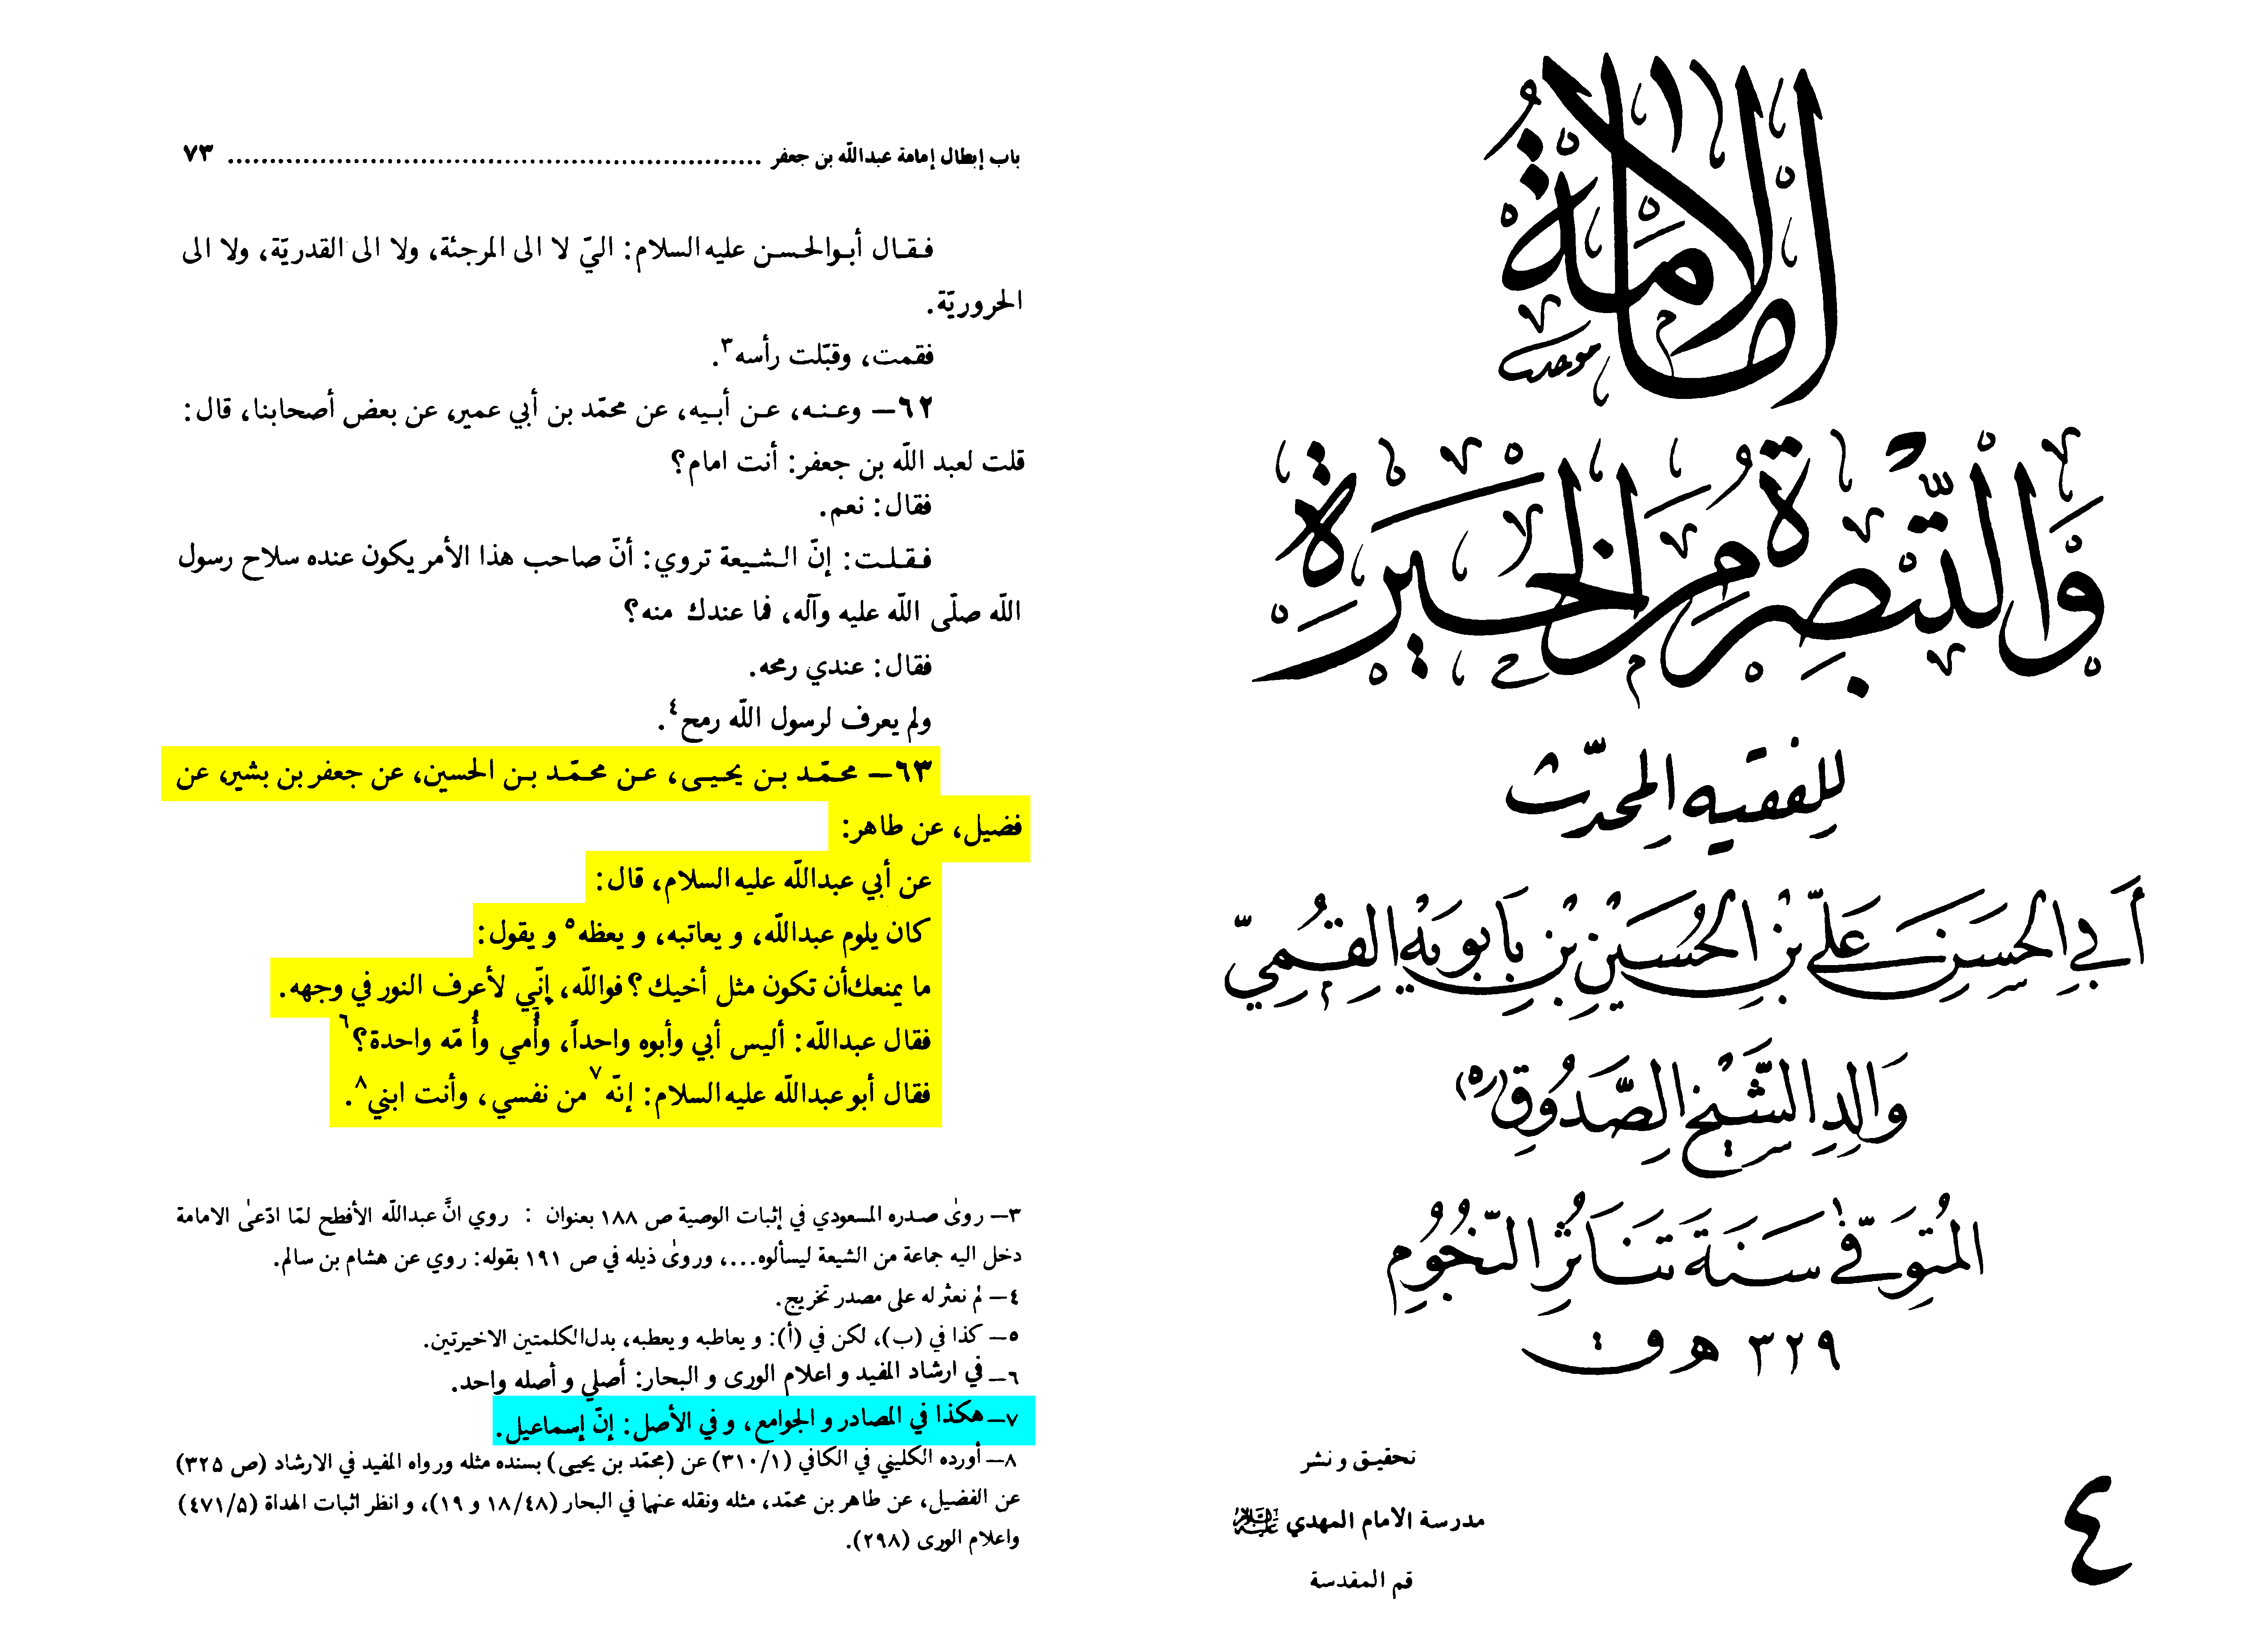 الإمامة
والتبصرة من الحيرة
للفقيه المحدث
أبي الحسن علي بن الحسين بن بابويه القمي
والد الشيخ الصدوق (ره)
المتوفى سنة تناثر النجوم
٣٢٩ هـ ق
تحقيق و نشر
مدرسة الامام المهدي
قم المقدسة
٤
باب إبطال إمامة عبدالله بن جعفر ........ ٧٣
فقال أبوالحسن عليه السلام: اليّ لا الى المرجئة، ولا الى القدريّة، ولا الى
الحروريّة.
فقمت، وقبّلت رأسه٣.
٦٢ــ وعنه، عن أبيه، عن محمّد بن أبي عمير، عن بعض أصحابنا، قال:
قلت لعبد الله بن جعفر: أنت امام؟
فقال: نعم.
فقلت: إنّ الشيعة تروي: أنّ صاحب هذا الأمر يكون عنده سلاح رسول
الله صلّى الله عليه وآله، فما عندك منه؟
فقال: عندي رمحه.
ولم يعرف لرسول الله رمح٤.
٦٣ــ محمّد بن يحيى، عن محمّد بن الحسين، عن جعفر بن بشير، عن
فضيل، عن طاهر:
عن أبي عبدالله عليه السلام، قال:
كان يلوم عبدالله، و يعاتبه، و يعظه٥ و يقول:
ما يمنعك أن تكون مثل أخيك؟ فوالله، إنّي لأعرف النور في وجهه.
فقال عبدالله: أليس أبي وأبوه واحداً، وأُمي وأُمّه واحدة؟٦
فقال أبو عبدالله عليه السلام: إنّه٧ من نفسي، وأنت ابني٨.
٣ــ روىٰ صدره المسعودي في إثبات الوصية ص ١٨٨ بعنوان : روي انَّ عبدالله الأفطح لمّا ادّعىٰ الامامة
دخل اليه جماعة من الشيعة ليسألوه...، وروىٰ ذيله في ص ١٩١ بقوله: روي عن هشام بن سالم.
٤ــ لم نعثر له على مصدر تخريج.
٥ــ كذا في (ب)، لكن في (أ): و يعاطبه و يعطبه، بدل الكلمتين الاخيرتين.
٦ــ في ارشاد المفيد و اعلام الورى و البحار: أصلي و أصله واحد.
٧ــ هكذا في المصادر و الجوامع، و في الأصل: إنّ إسماعيل.
٨ــ أورده الكليني في الكافي (٣١٠/١) عن (محمّد بن يحيى) بسنده مثله ورواه المفيد في الارشاد (ص ٣٢٥)
عن الفضيل، عن طاهر بن محمّد، مثله ونقله عنهما في البحار (١٨/٤٨ و ١٩)، و انظر اثبات الهداة (٤٧١/٥)
واعلام الورى (٢٩٨).